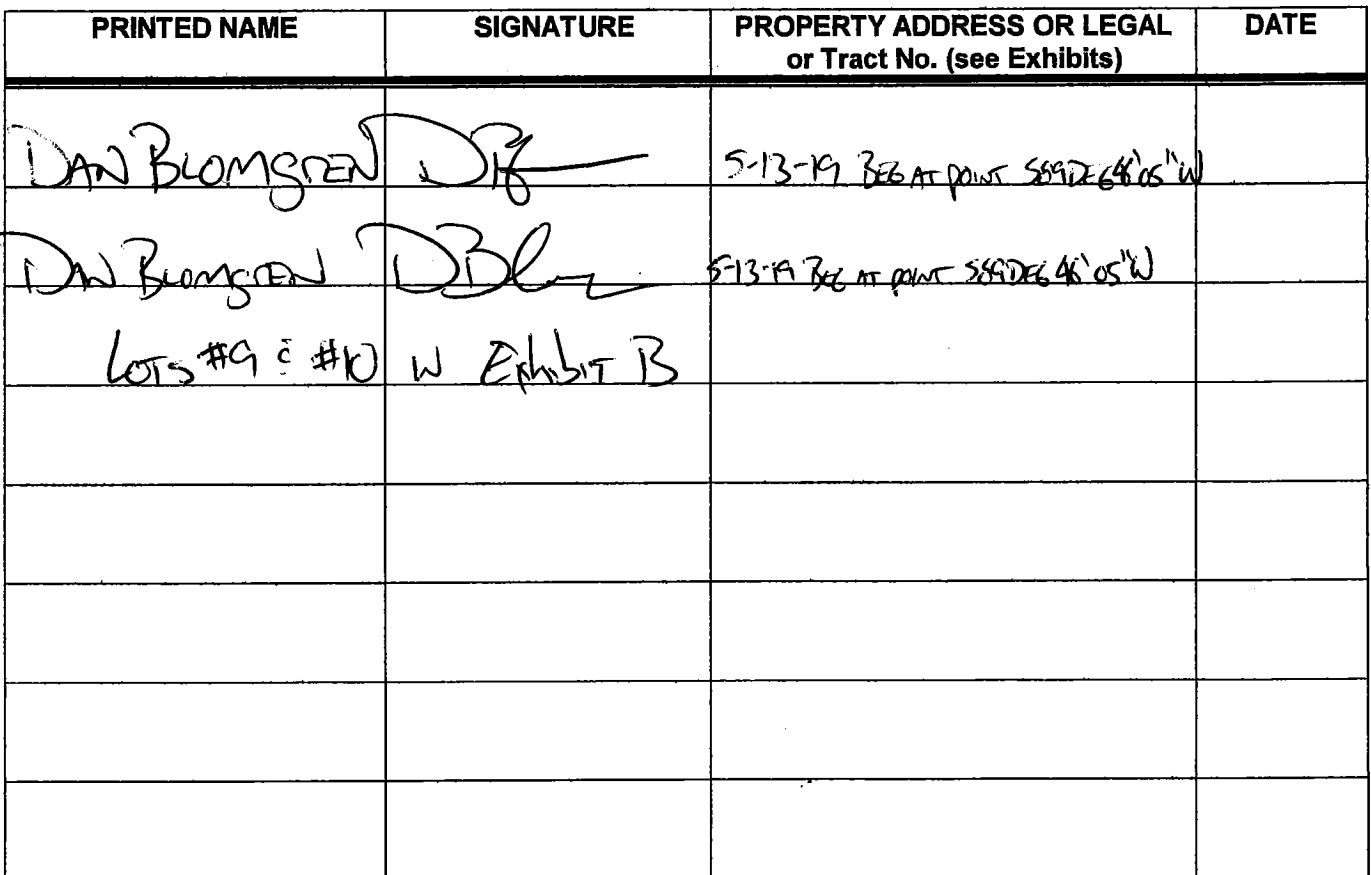 PRINTED NAME SIGNATURE PROPERTY ADDRESS OR LEGAL DATE
or Tract No. (see Exhibits)
DAN BLOMGREN 5-13-19 BEG AT POINT S89DEG46'05"W
DAN BLOMGREN 5-13-19 BEG AT POINT S89DEG46'05"W
LOTS #9 & #10 W Exhibit B